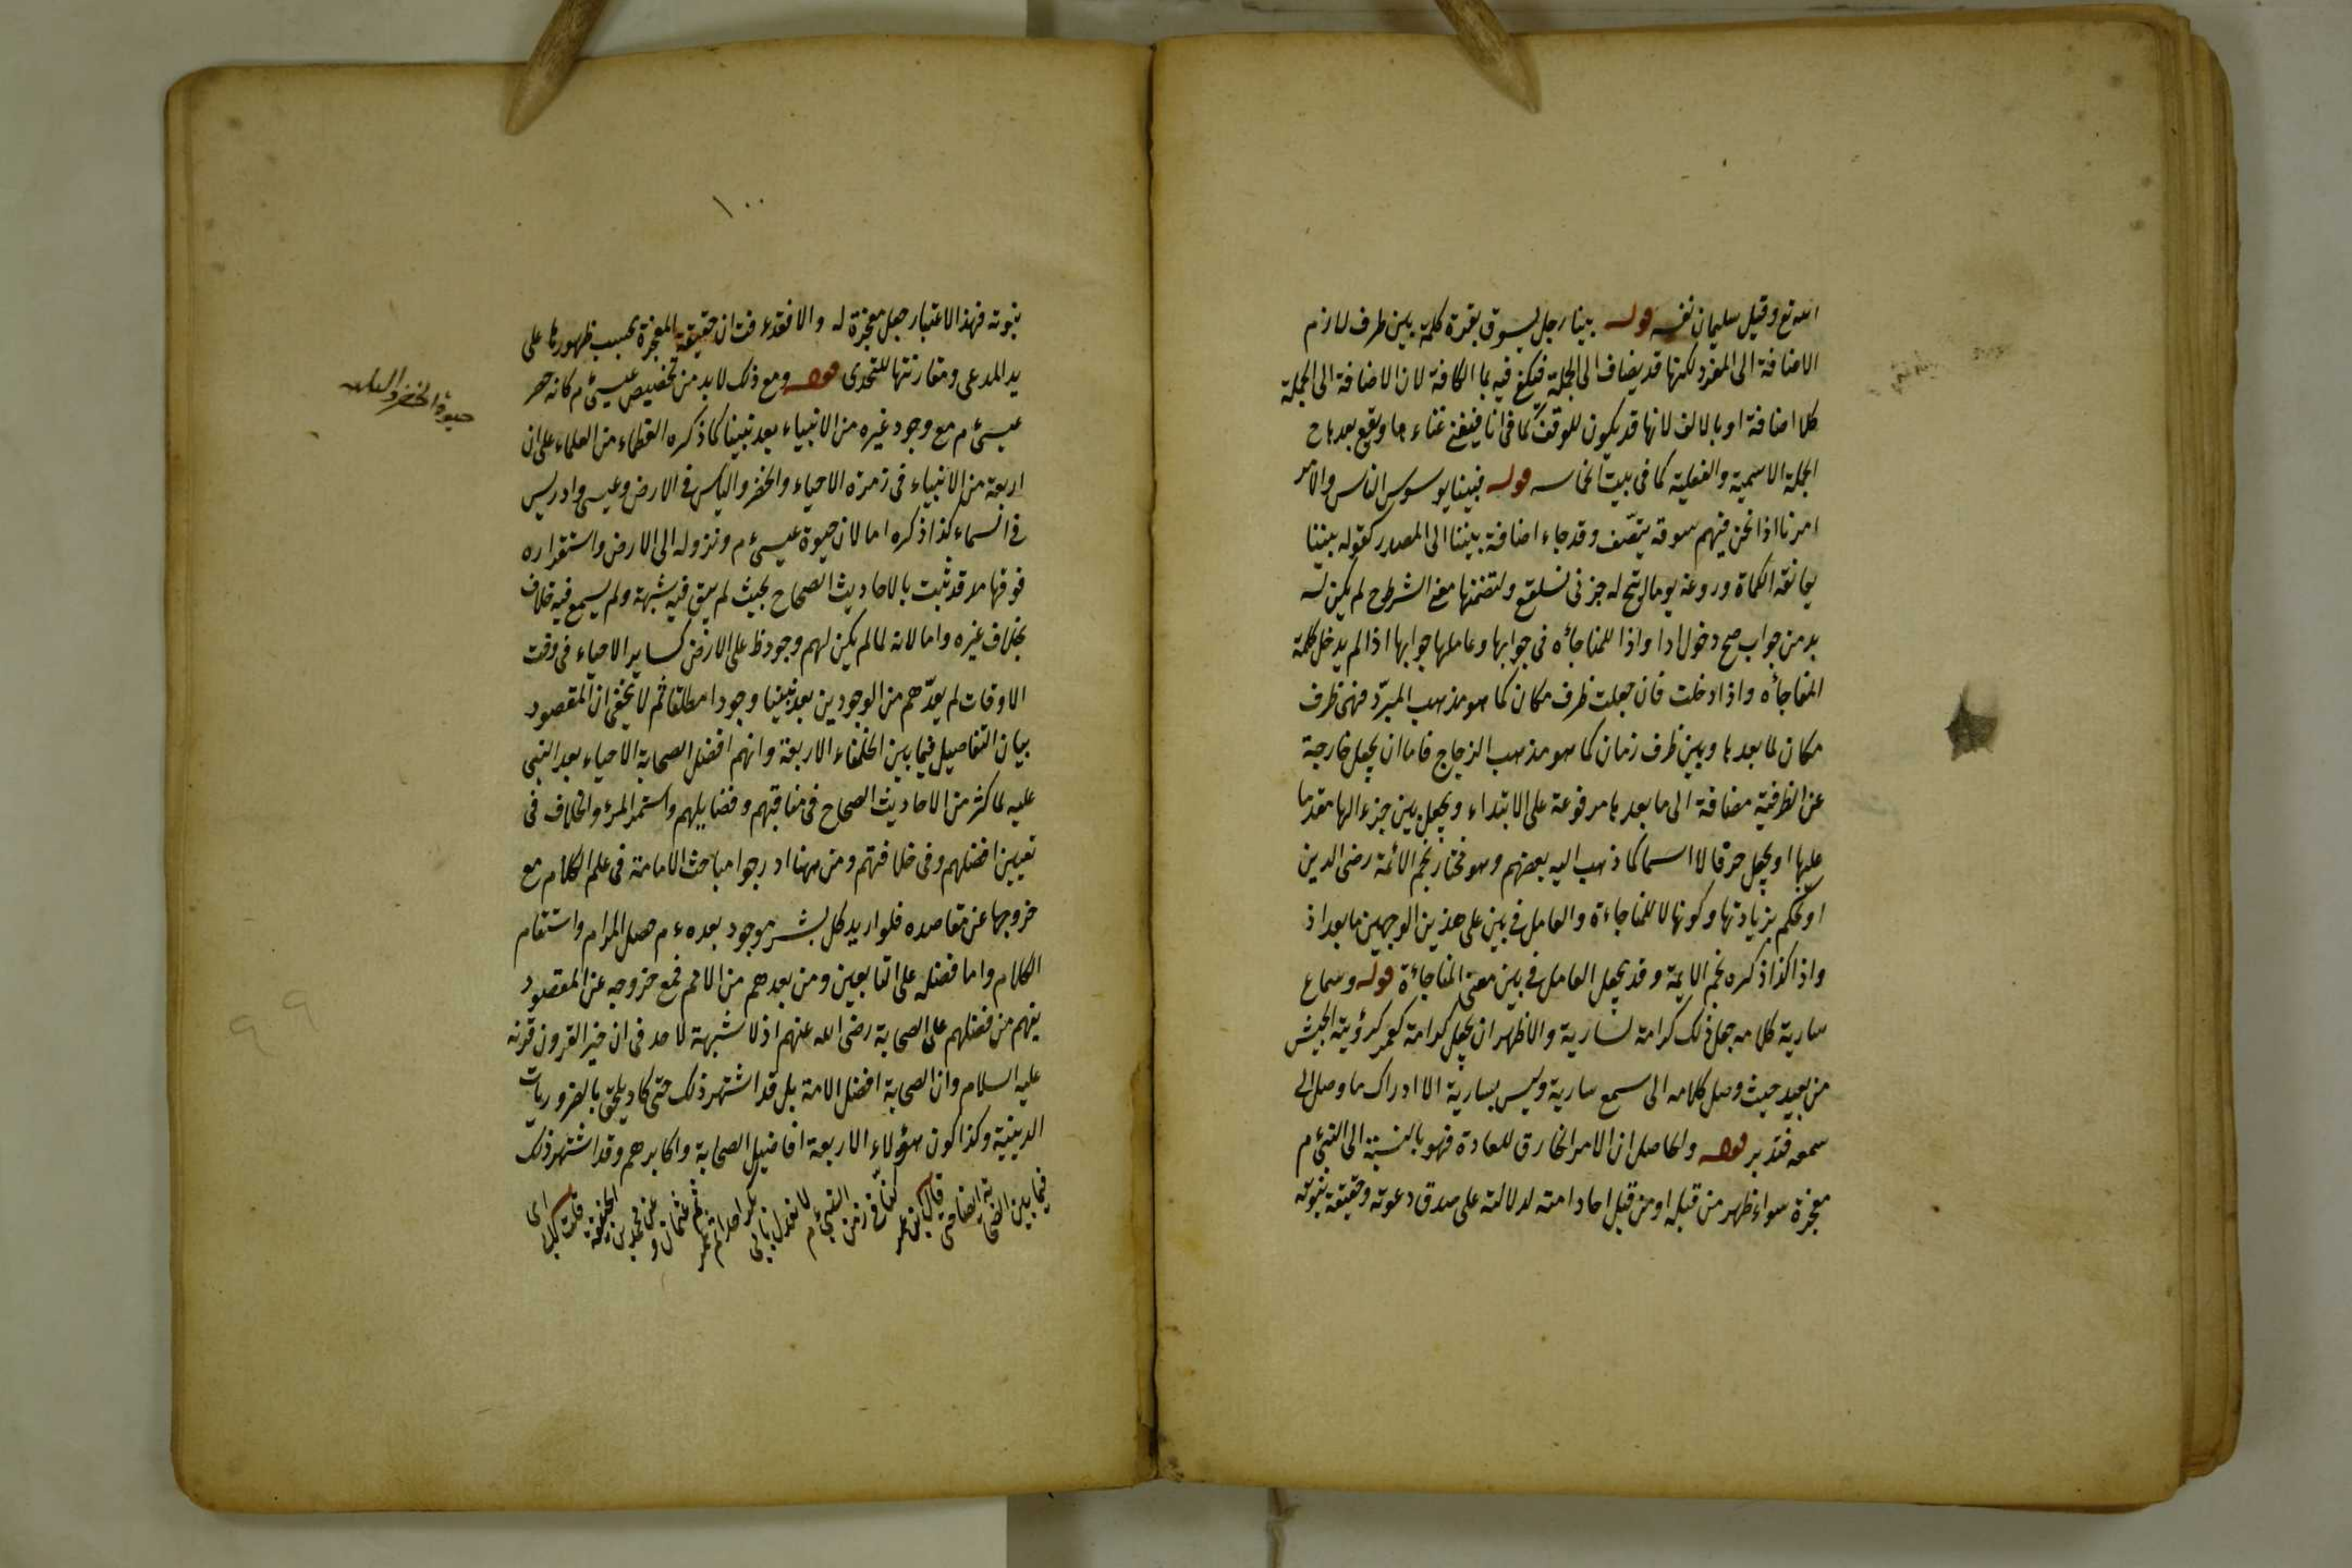 الله تع وقيل سليمان نفسه قوله بينا رجل يسوق بقرة كلمة بين ظرف لازم
الاضافة الى المفرد لكنها قد يضاف الى الجملة فيكف فيه بما الكافة لان الاضافة الى الجملة
كلا اضافة او بالالف لانها قد يكون للوقف كما فى انا فيغنى غناء ما ويقع بعدها ح
الجملة الاسمية والفعلية كما فى بيت قوله فبينا يسوس الناس والامر
امرنا اذا نحن فيهم سوقة وقد جاء اضافة بينا الى المصدر كقوله بينا
الكماة وروغه يوما له ولتضمنها معنى الشرط ح لم يكن له
بد من جواب صح دخول اذا واذا للمفاجأه فى جوابها وعاملها جوابها اذا لم يدخل كلمة
المفاجأه واذا دخلت فان جعلت ظرف مكان كما هو مذهب المبرّد فهى ظرف
مكان لما بعدها وبين ظرف زمان كما هو مذهب الزجاج فاما ان يجعل خارجة
عن الظرفية مضافة الى ما بعدها مرفوعة على الابتداء ويجعل بين جزء الها مقدما
عليها او يجعل حرفا لا اسما كما ذهب اليه بعضهم وهو مختار نجم الائمة رضى الدين
او يحكم بزيادتها وكونها لا للمفاجاءة والعامل فى بين على هذين الوجهين ما بعد اذ
واذا كذا ذكره نجم الايمة وقد يجعل العامل فى بين معنى المفاجأة قوله وسماع
سارية كلامه جعل ذلك كرامة لسارية والاظهر ان يجعل كرامة لعمر كرؤية الجيش
من بعيد حيث وصل كلامه الى سمع سارية وليس بسارية الا ادراك ما وصل الى
سمعه فتدبر قوله والحاصل ان الامر الخارق للعادة فهو بالنسبة الى النبى ٤م
معجزة سواء ظهر من قبله او من قبل احاد امته لدلالته على صدق دعوته وحقيقة نبوته
١٠٠
نبوته فبهذا الاعتبار جعل معجزة له والا فقد عرفت ان حقيقة المعجزة بحسب ظهورها على
يد المدعى ومقارنتها للتحدى قوله ومع ذلك لا بد من تخصيص عيسى ٤م كانه حصر
عيسى ٤م مع وجود غيره من الانبياء بعد نبينا كما ذكره العظماء من العلماء على ان
اربعة من الانبياء فى زمرة الاحياء والخضر والياس فى الارض وعيسى وادريس
فى السماء كذا ذكره اما لان حيوة عيسى ٤م ونزوله الى الارض واستقراره
فوقها قد ثبت بالاحاديث الصحاح بحيث لم يبق فيه شبهة ولم يسمع فيه خلاف
بخلاف غيره واما لانه لما لم يكن لهم وجود ظ على الارض كساير الاحياء فى وقت
الاوقات لم يعدّهم من الوجودين بعد نبينا وجودا مطلقا ثم لا يخفى ان المقصود
بيان التفاصيل فيما بين الخلفاء الاربعة وانهم افضل الصحابة الاحياء بعد النبى
عليه لما كثر من الاحاديث الصحاح فى مناقبهم وفضايلهم واستمر المرء والخلاف فى
تعيين افضلهم وفى خلافتهم ومن ههنا ادرجوا مباحث الامامة فى علم الكلام مع
خروجها عن مقاصده فلو اريد كل بشر موجود بعده ٤م حصل المرام واستقام
الكلام واما فضله على التابعين ومن بعدهم من الامم فمع خروجه عن المقصود
يفهم من فضلهم على الصحابة رضى الله عنهم اذ لا شبهة لاحد فى ان خير القرون قرنه
عليه السلام وان الصحابة افضل الامة بل قد اشتهر ذلك حتى كاد يلحق بالضروريات
الدينية وكذا كون هؤلاء الاربعة افاضل الصحابة واكابرهم وقد اشتهر ذلك
فيما بين الصحابة ايضا قال ابن عمر كنا فى زمن النبى ٤م لا نعدل بابى بكر احدا ثم عمر ثم عثمان وعن محمد بن الحنفية قلت لابى
حيوة الخضر والياس
٩٩